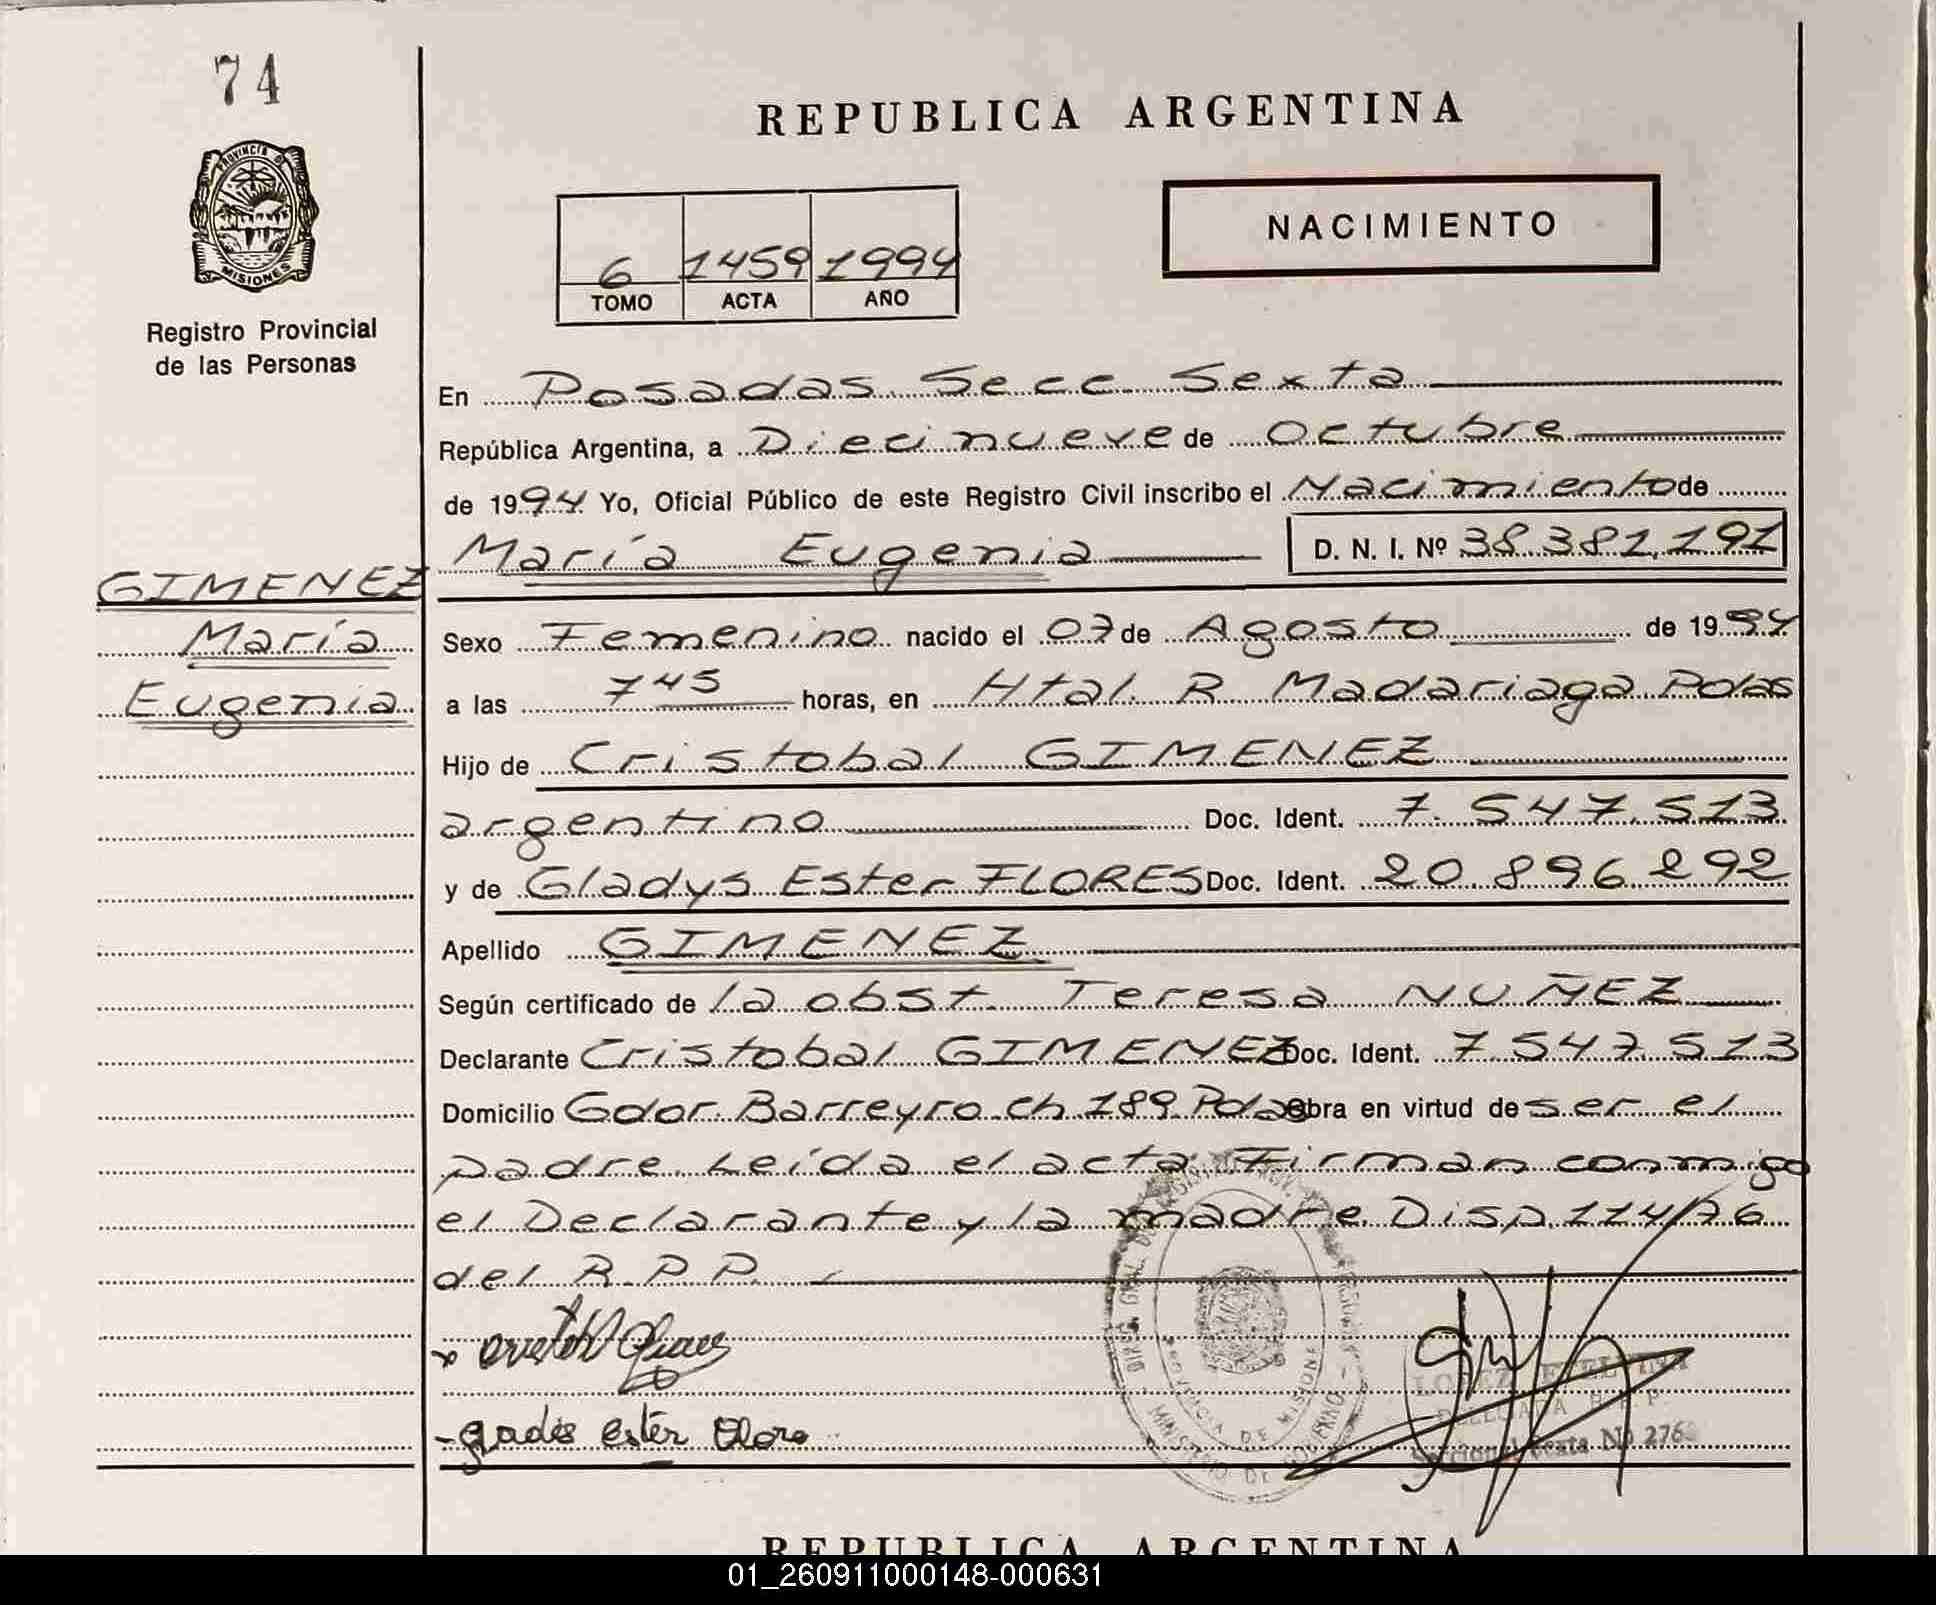 74
REPUBLICA ARGENTINA
PROVINCIA DE
MISIONES
Registro Provincial
de las Personas
NACIMIENTO
6 1459 1994
TOMO ACTA AÑO
En Posadas Secc Sexta
República Argentina, a Diecinueve de Octubre
de 1994 Yo, Oficial Público de este Registro Civil inscribo el Nacimiento de
María Eugenia D. N. I. Nº 38.381.191
GIMENEZ
María
Eugenia
Sexo Femenino nacido el 07 de Agosto de 1994
a las 745 horas, en Htal. R Madariaga Pdas
Hijo de Cristobal GIMENEZ
argentino Doc. Ident. 7.547.513
y de Gladys Ester FLORES Doc. Ident. 20.896.292
Apellido GIMENEZ
Según certificado de la obst. Teresa NUÑEZ
Declarante Cristobal GIMENEZ Doc. Ident. 7.547.513
Domicilio Gdor. Barreyro ch 189 Pdas Obra en virtud de ser el
padre. Leída el acta Firman conmigo
el Declarante y la madre. Disp. 114/76
del R.P.P.
PROVINCIA DE MISIONES
MINISTERIO DE GOBIERNO
LOPEZ ETELVINA
DELEGADA R. P. P.
Seccional Sexta Nº 276
REPUBLICA ARGENTINA
01_260911000148-000631